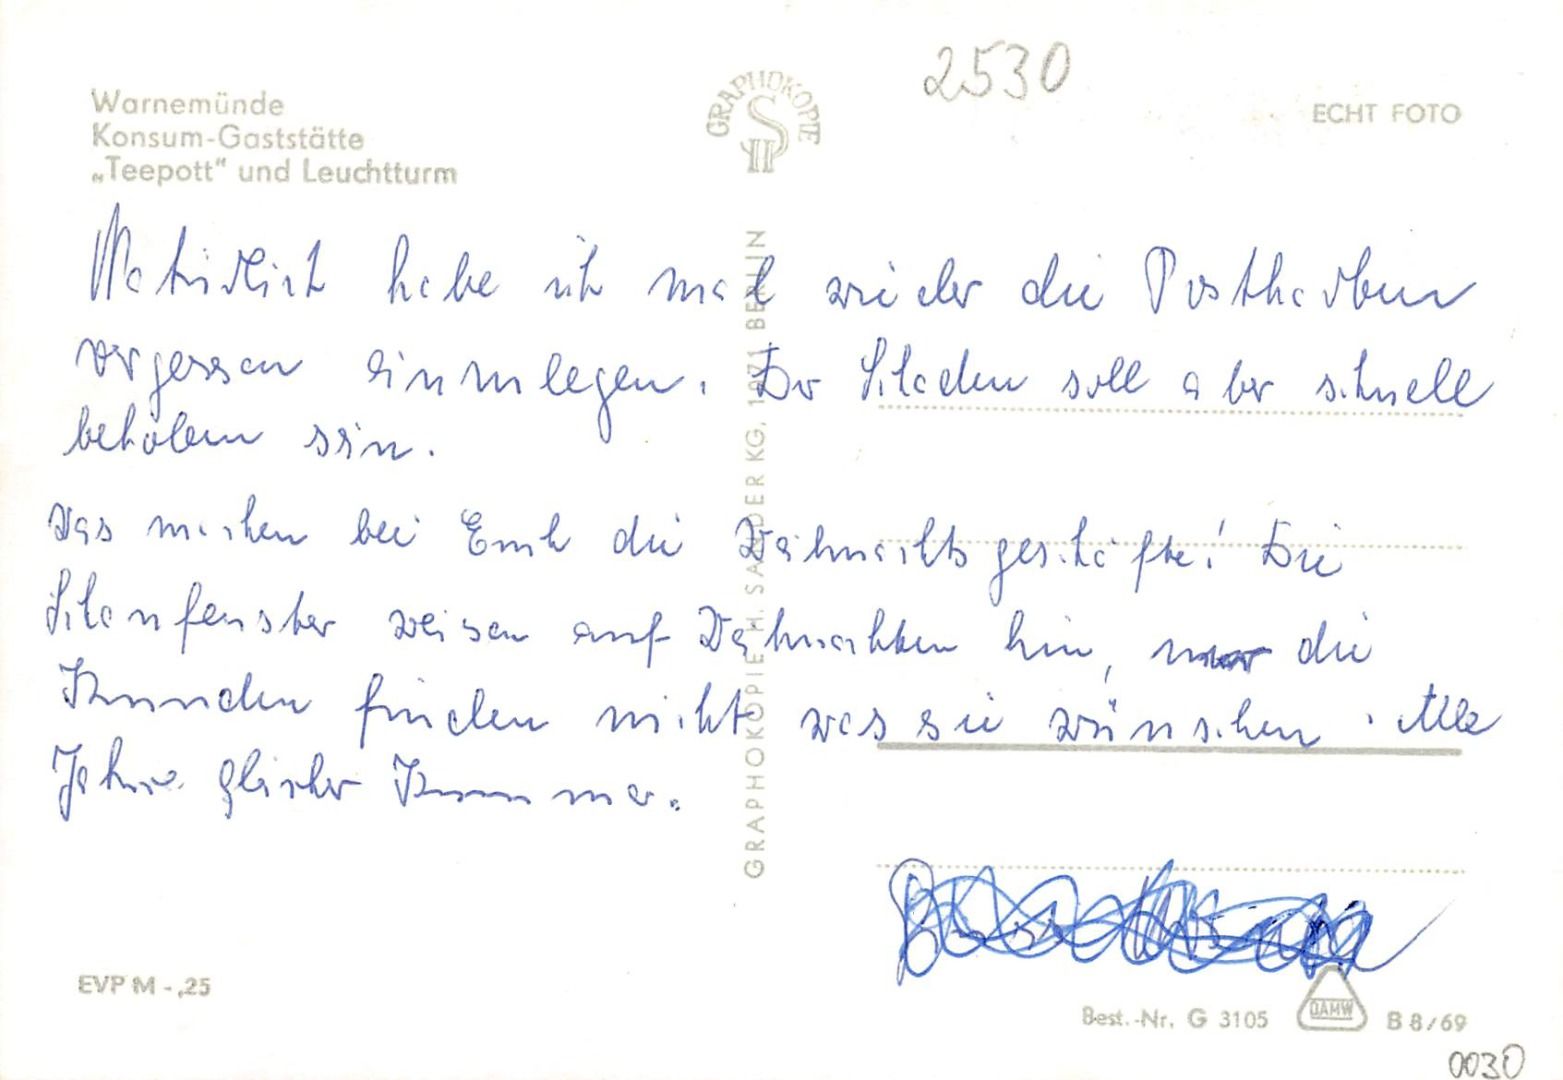 Warnemünde
Konsum-Gaststätte
„Teepott“ und Leuchtturm
GRAPHOKOPIE
2530
ECHT FOTO
Natürlich habe ich mal wieder die Postkarten
vergessen einzulegen. Der Schaden soll aber schnell
behoben sein.
Was machen bei Euch die Weihnachtsgeschäfte! Die
Schaufenster weisen auf Weihnachten hin, nur die
Kunden finden nicht was sie wünschen. Alle
Jahre gleicher Kummer.
GRAPHOKOPIE H. SANDER KG, 1071 BERLIN
EVP M -,25
Best.-Nr. G 3105
DAMW
B 8/69
0030